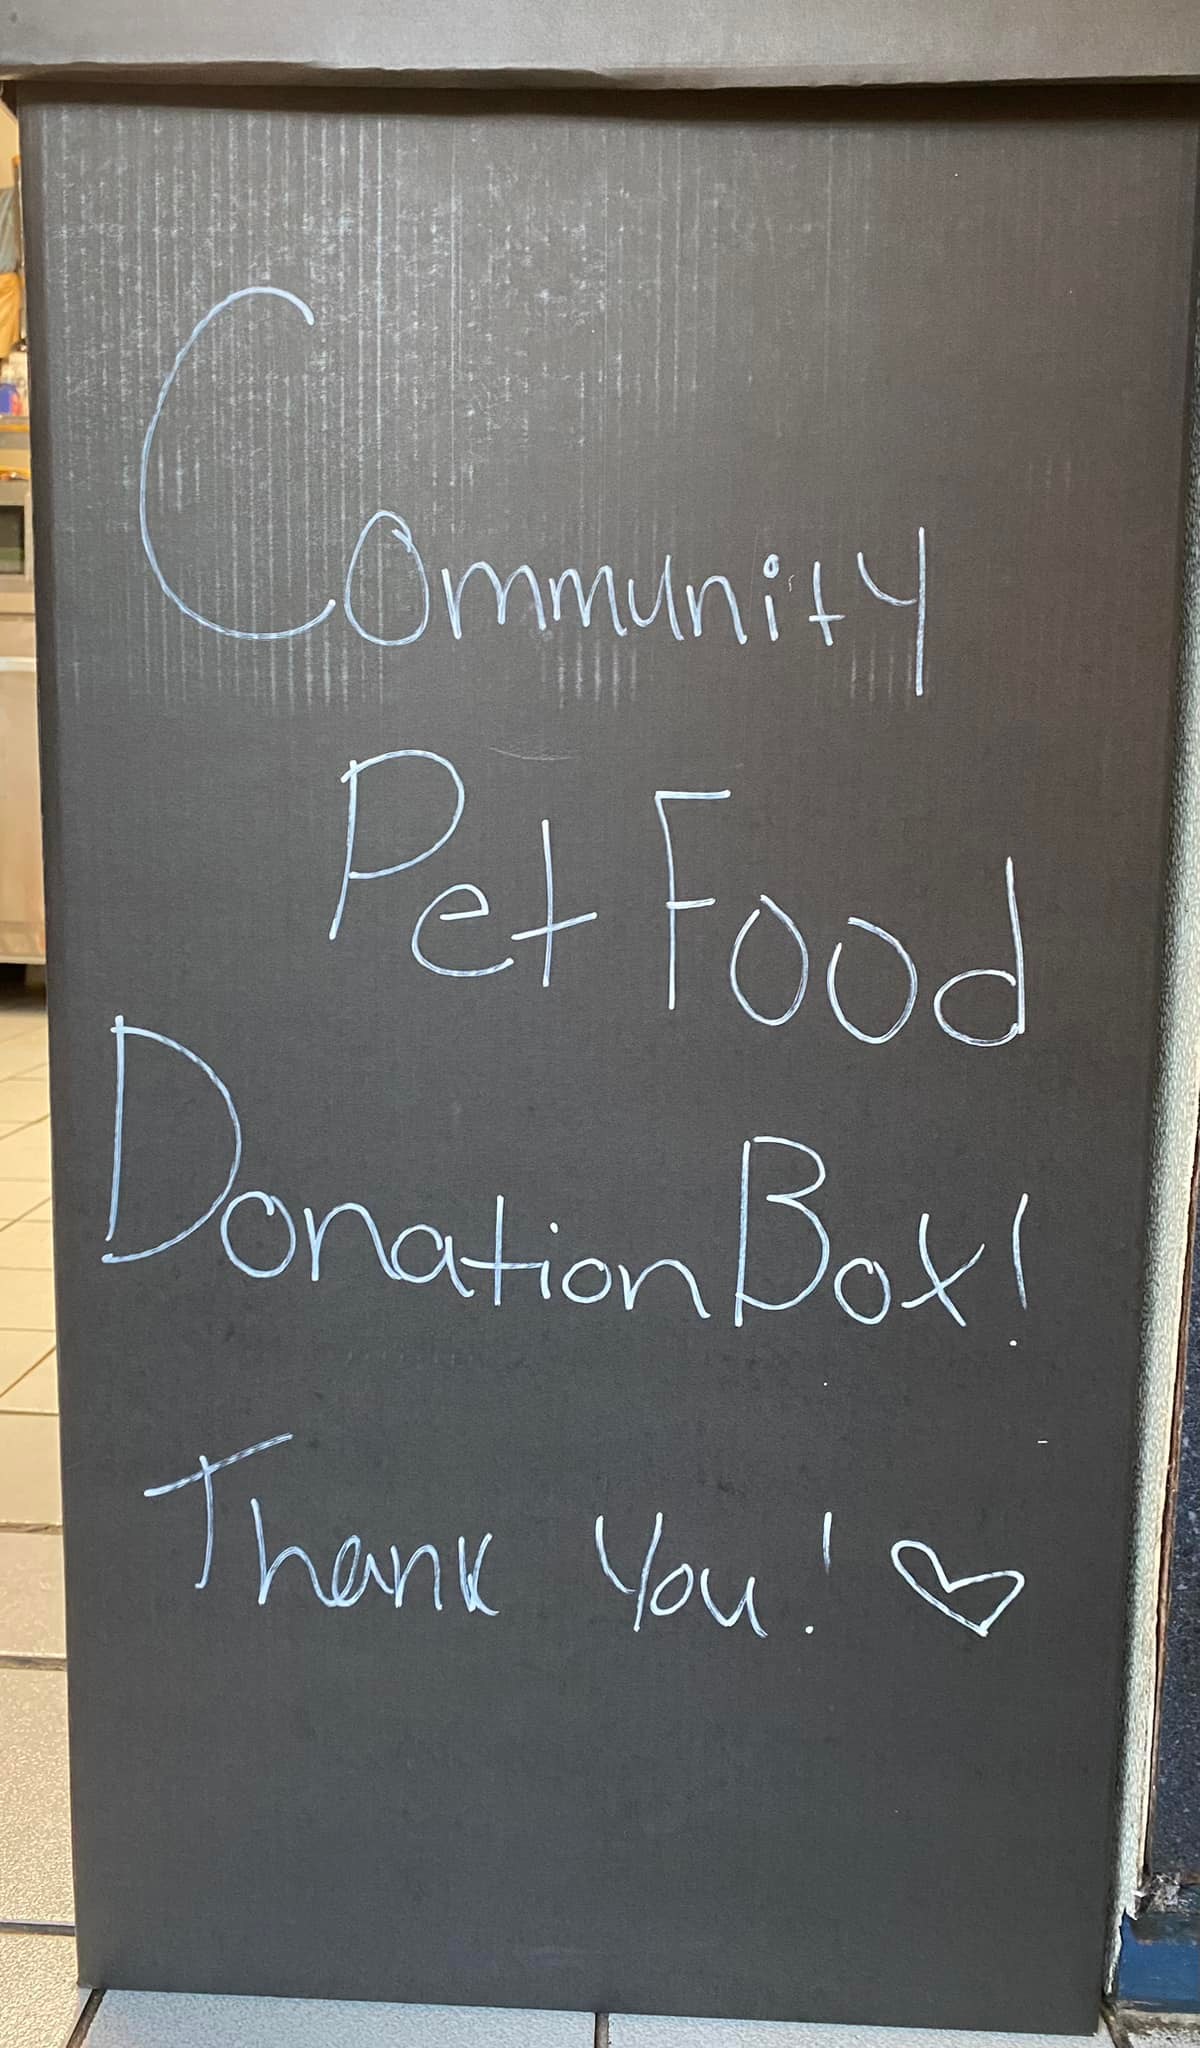 Community
Pet Food
Donation Box!
Thank You! ♡